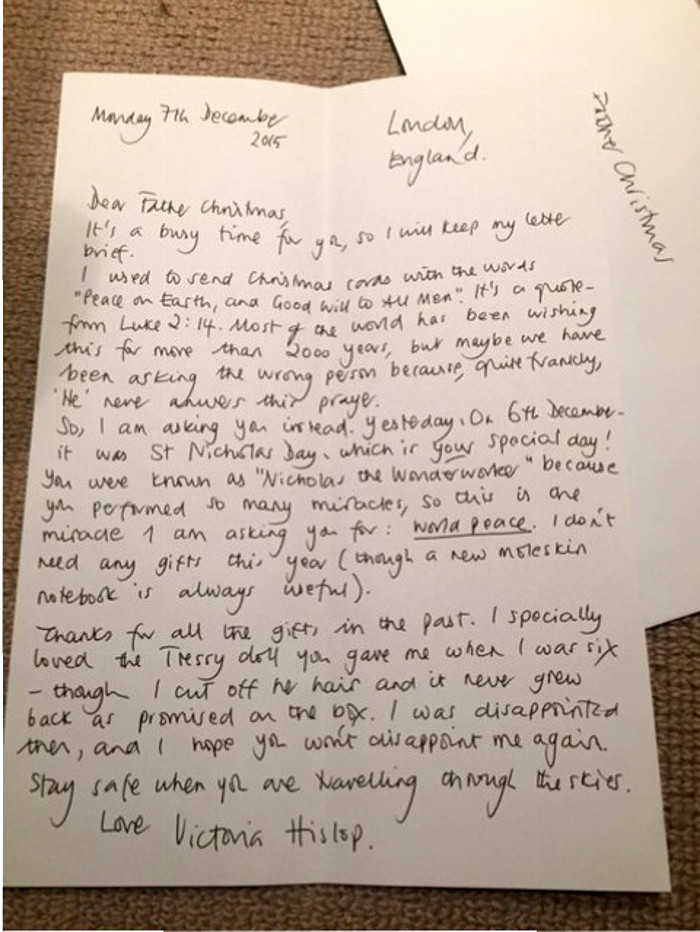 Monday 7th December
2015
London,
England.
Father Christmas
Dear Father Christmas,
It's a busy time for you, so I will keep my letter
brief.
I used to send Christmas cards with the words
"Peace on Earth, and Good Will to All Men". It's a quote-
from Luke 2:14. Most of the world has been wishing
this for more than 2000 years, but maybe we have
been asking the wrong person because, quite frankly,
'He' never answers this prayer.
So, I am asking you instead. Yesterday, On 6th December-
it was St Nicholas Day, which is your special day!
You were known as "Nicholas the Wonderworker" because
you performed so many miracles, so this is one
miracle I am asking you for: world peace. I don't
need any gifts this year (though a new moleskin
notebook is always useful).
Thanks for all the gifts in the past. I specially
loved the Tressy doll you gave me when I was six
- though I cut off her hair and it never grew
back as promised on the box. I was disappointed
then, and I hope you won't disappoint me again.
Stay safe when you are travelling through the skies.
Love Victoria Hislop.